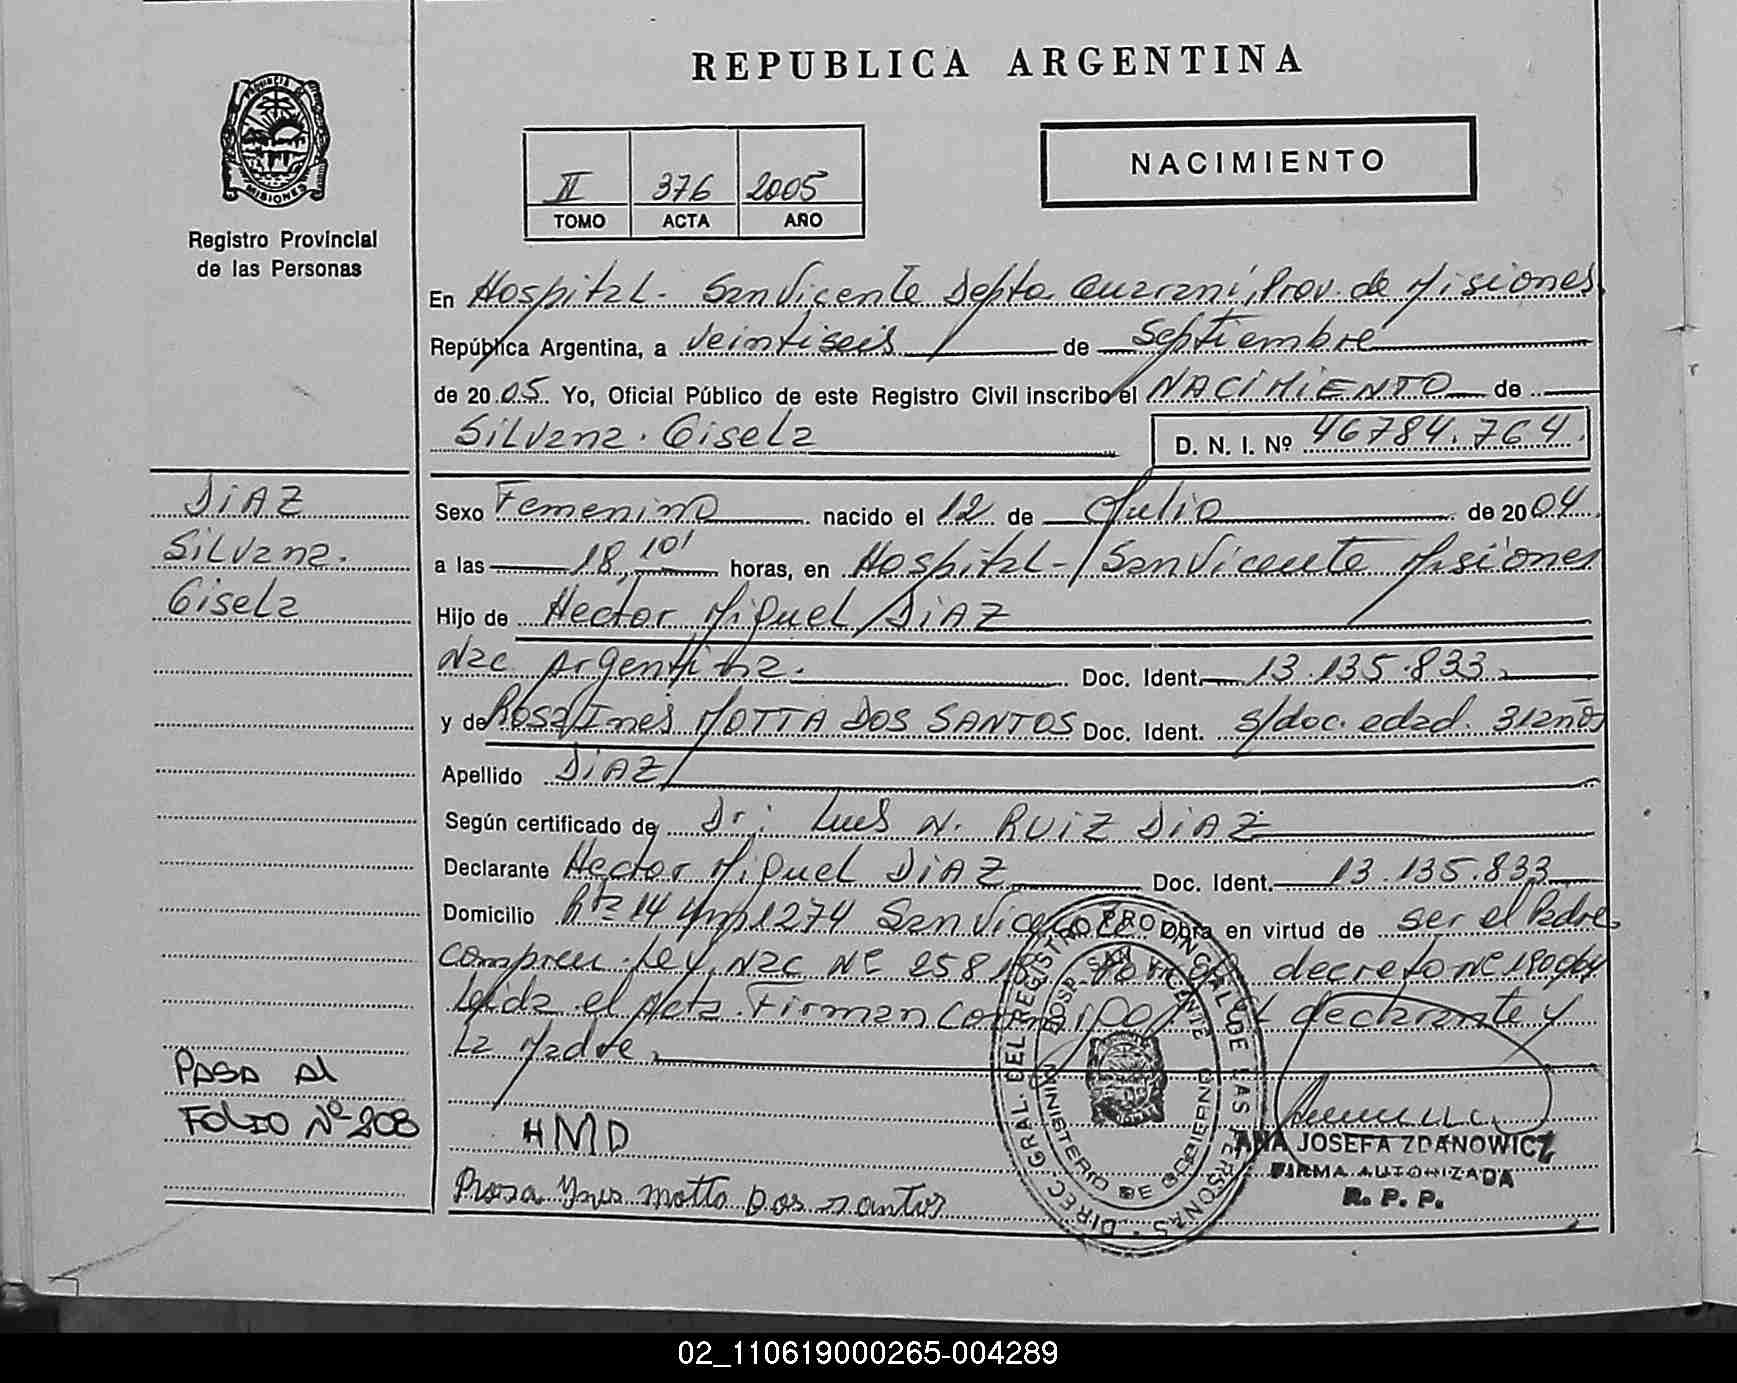 REPUBLICA ARGENTINA
PROVINCIA DE
MISIONES
Registro Provincial
de las Personas
II 376 2005
TOMO ACTA AÑO
NACIMIENTO
En Hospital. San Vicente Depto Guarani, Prov. de Misiones
República Argentina, a veintiseis de Septiembre
de 2005. Yo, Oficial Público de este Registro Civil inscribo el NACIMIENTO de
Silvana. Gisela D. N. I. Nº 46784.764.
DIAZ
Silvana.
Gisela
Sexo Femenino nacido el 12 de Julio de 2004.
a las 18,10' horas, en Hospital - San Vicente Misiones
Hijo de Hector Miguel DIAZ
Nac Argentina. Doc. Ident. 13.135.833
y de Rosa Ines MOTTA DOS SANTOS Doc. Ident. s/doc. edad. 31años
Apellido DIAZ
Según certificado de Dr: Luis N. RUIZ DIAZ
Declarante Hector Miguel DIAZ Doc. Ident. 13.135.833
Domicilio Rta 14 Km 1274 San Vicente Obra en virtud de ser el Padre
compren. Ley Nac Nº 2581 decreto Nº
Leida el Acta. Firman el declarante y
La Madre
PASA Al
FOLIO Nº 208
HMD
Rosa Ynes motta Dos santos
DIREC. GRAL. DEL REGISTRO PROVINCIAL DE LAS PERSONAS
HOSP. SAN VICENTE
MINISTERIO DE GOBIERNO
ANA JOSEFA ZDANOWICZ
FIRMA AUTORIZADA
R. P. P.
02_110619000265-004289